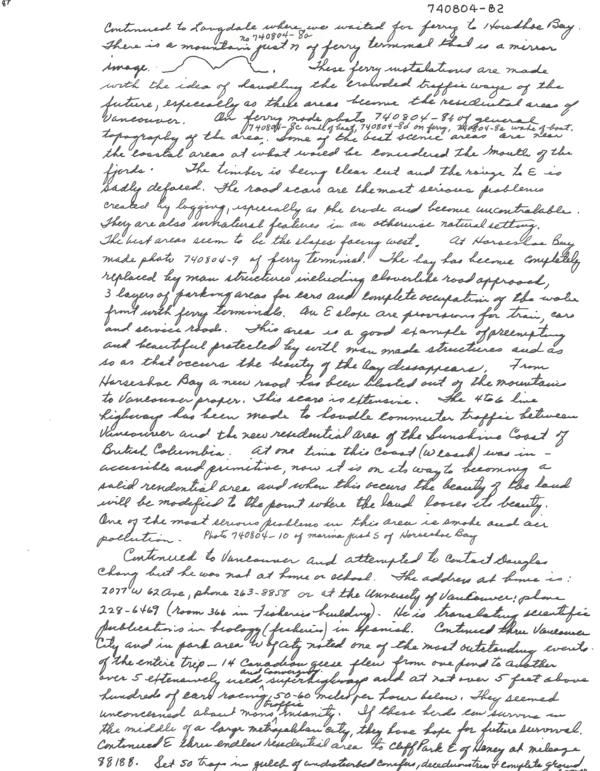 87
740804-82
Continued to Langdale where we waited for ferry to Horseshoe Bay.
no 740804-8a
There is a mountain just N of ferry terminal that is a mirror
image. These ferry instalations are made
with the idea of handling the crowded traffic ways of the
future, especially as these areas become the residential areas of
Vancouver. On ferry made photo 740804-8b of general
740804-8c end of boat, 740804-8d on ferry, 740804-8e wake of boat.
topography of the area. Some of the best scenic areas are near
the coastal areas at what would be considered the mouth of the
fjords. The timber is being clear cut and the range to E is
badly defaced. The road scars are the most serious problems
created by logging, especially as the erode and become uncontrolable.
They are also unnatural features in an otherwise natural setting.
The best areas seem to be the slopes facing west. At Horseshoe Bay
made photo 740804-9 of ferry terminal. The bay has become completely
replaced by man structures including cloverlike road approach,
3 layers of parking areas for cars and complete occupation of the water
front with ferry terminals. On E slope are provisions for train, cars
and service roads. This area is a good example of preempting
and beautiful protected by with man made structures and as
so as that occurs the beauty of the bay dissappears. From
Horseshoe Bay a new road has been blasted out of the mountains
to Vancouver proper. This scare is extensive. The 4 to 6 line
highways has been made to handle commuter traffic between
Vancouver and the new residential area of the Sunshine Coast of
British Columbia. At one time this Coast (W coast) was in-
accessible and primitive, now it is on its way to becoming a
solid residential area and when this occurs the beauty of the land
will be modified to the point where the land looses its beauty.
One of the most serious problems in this area is smoke and air
pollution. Photo 740804-10 of marina just S of Horseshoe Bay
Continued to Vancouver and attempted to contact Douglas
Chong but he was not at home or school. The address at home is:
2077 W 62 Ave, phone 263-8858 or at the University of Vancouver: phone
228-6469 (room 366 in Fisheries building). He is translating scientific
publications in biology (fisheries) in Spanish. Continued thru Vancouver
City and in park area W of City noted one of the most outstanding events
of the entire trip - 14 Canadian geese flew from one pond to another
and converging
over 5 extensively used superhighways and at not over 5 feet above
hundreds of cars racing 50-60 miles per hour below. They seemed
traffic
unconcerned about mans insanity. If these birds can survive in
the middle of a large metropolitan city, they have hope for future survival.
Continued E thru endless residential area to Cliff Park E of Haney at mileage
88188. Set 50 traps in gulch of undisturbed conifers, deciduous trees & complete ground